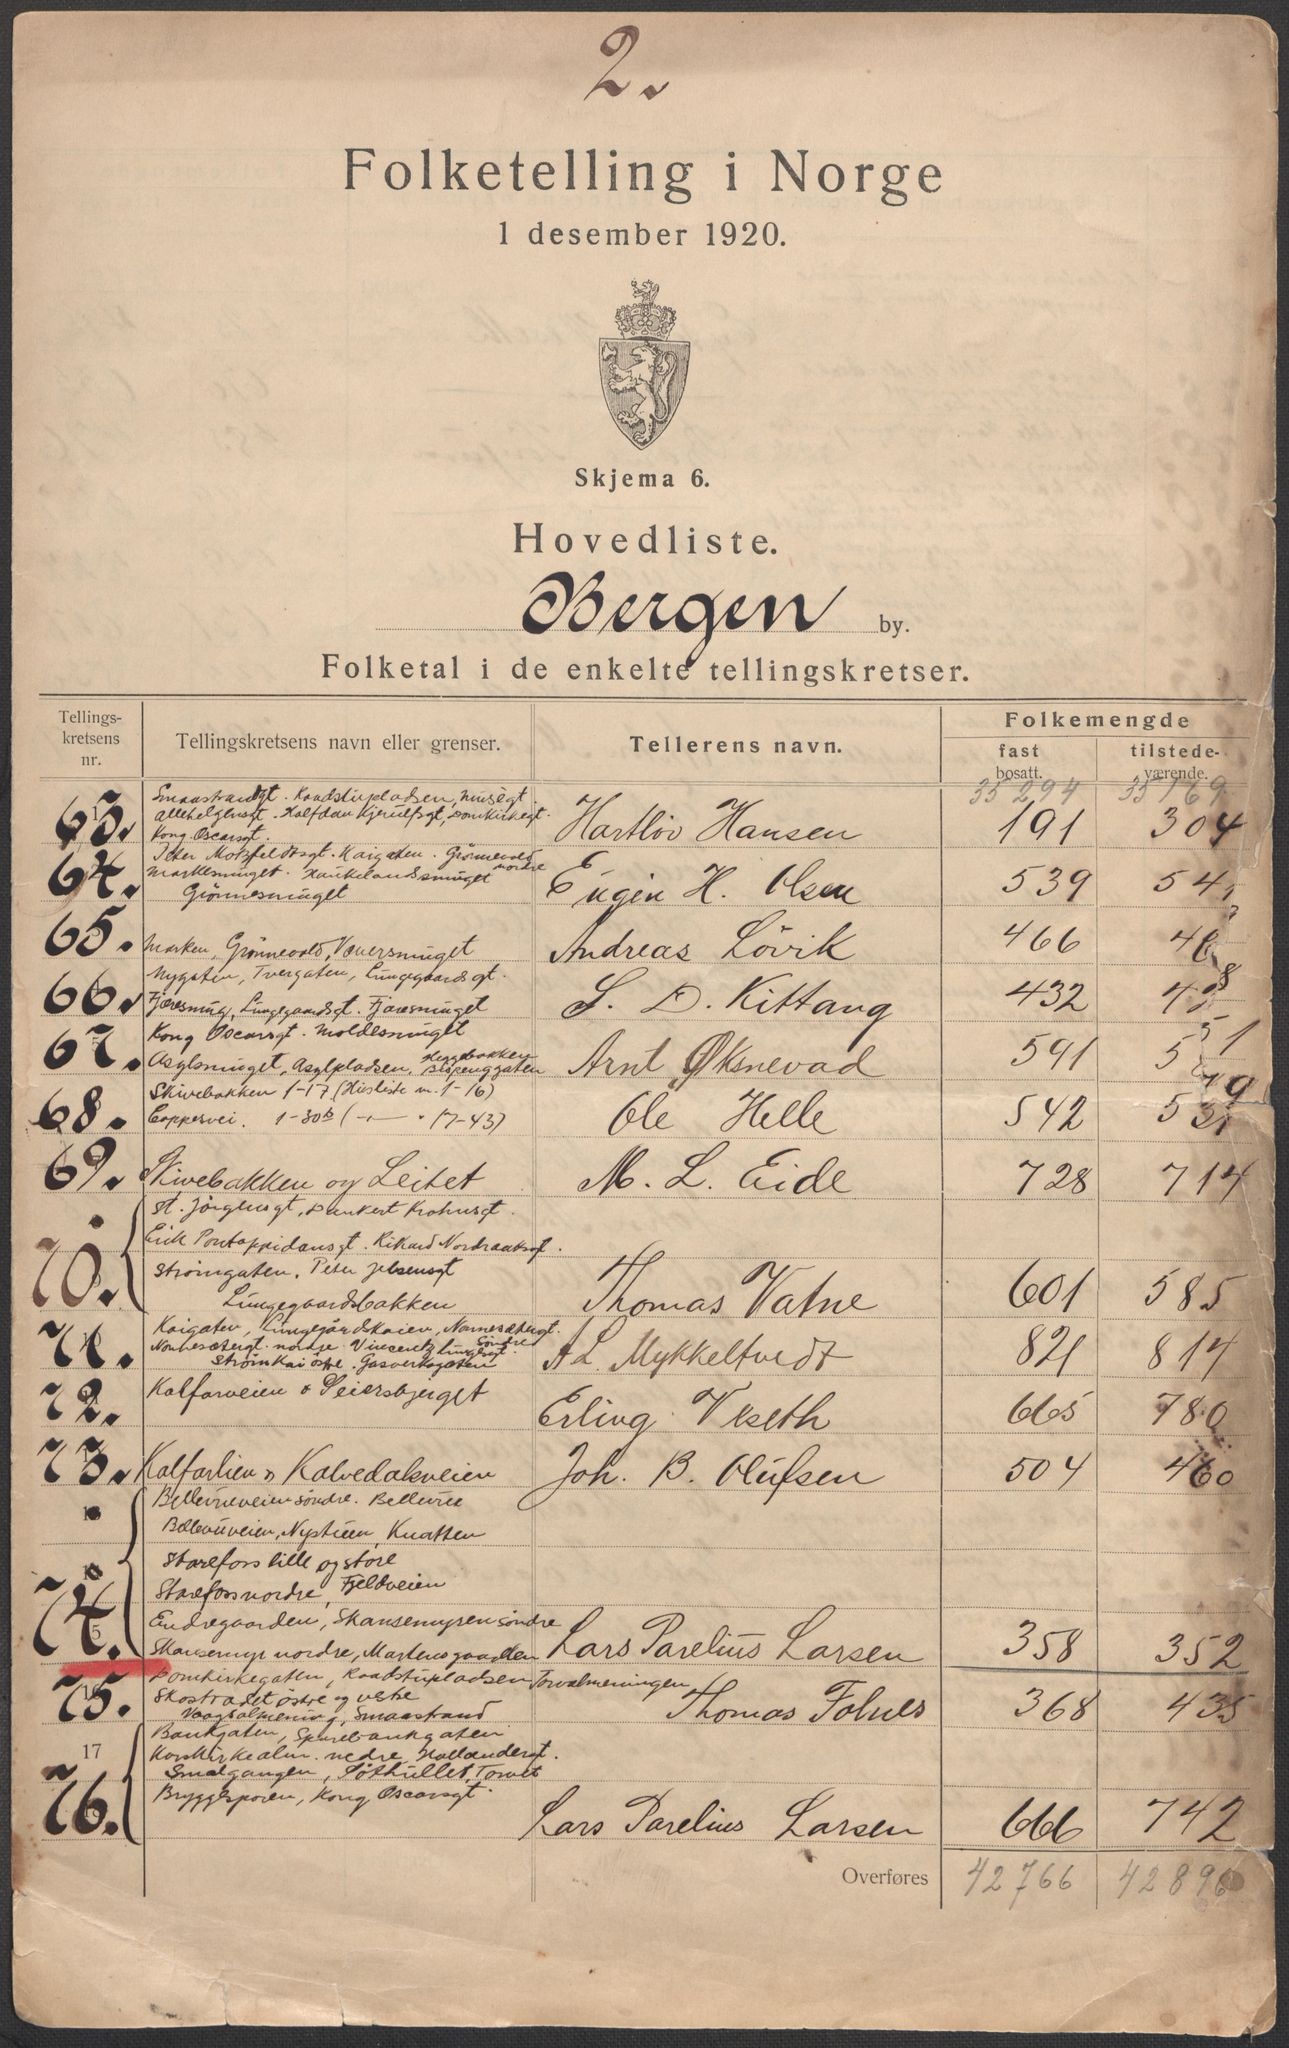 2.
Folketelling i Norge
1 desember 1920.
Skjema 6.
Hovedliste.
Bergen by.
Folketal i de enkelte tellingskretser.
Tellings-kretsens nr. Tellingskretsens navn eller grenser. Tellerens navn. Folkemengde
fast bosatt. tilstede-værende.
35294 35169
Smaastrandgt. Raadstupladsen, Musègt
Allehelgensgt. Halfdan Kjerulfsgt, Domkirkegt.
63. Kong Oscarsgt. Hartlöv Hansen 191 304
Peter Motzfeldtsgt. Kaigaten. Grönnevold nordre
64. Markesmuget. Haukelandsmuget
Grönnesmuget Eugin H. Olsen 539
65. Marken, Grönnevold, Andreas Lövik 466
Nygaten, Tvergaten, Lungegaardsgt.
66. Fjæresmug, Lungegaardsgt. Fjæresmuget S. D. Kittang 432
Kong Oscarsgt. Moldesmuget
67. Asylsmuget, Asylpladsen, Heggebakken Bispenggaten Arnt Øksnevad 591
Skivebakken 1-17 (Husliste nr. 1-16)
68. 1-30b ( — 17-43) Ole Helle 542
69. Skivebakken og Leitet M. L. Eide 728 714
St. Jörgensgt, Dankert Krohnsgt.
Erik Pontoppidansgt. Rikard Nordraaksgt.
70. Strömgaten, Peter Jebsensgt
Lungegaardsbakken Thomas Vatne 601 585
Kaigaten, Lungegårdskaien, Nonnesætergt. Söndre
71. Nonnesætergt. nordre. Vincentz Lungesgt.
Strömkai östre. Gasverksgaten A L. Mykkeltvedt 821 814
72. Kalfarveien & Seiersbjerget Erling Vkseth 665 780
73. Kalfarlien & Kalvedalsveien Joh. B. Olufsen 504 460
Bellevueveien söndre. Bellevue
Bellevueveien, Nystuen, Knatten
Starefoss lille og store
Starefoss nordre, Fjeldveien
74. Endregaarden, Skansemyren söndre
Skansemyr nordre, Martens gaarden Lars Parelius Larsen 358 352
Domkirkegaten, Raadstupladsen Torvalmeningen
75. Skostrædet östre og vestre
Vaagsalmening, Smaastrand Thomas Folnes 368 435
Bankgaten, Sparebankgaten
17 Korskirkealm. nedre, Hollendergt.
Smalgangen, Söthullet, Torvet
76. Bryggesporen, Kong Oscarsgt. Lars Parelius Larsen 666 742
Overføres 42766 42896